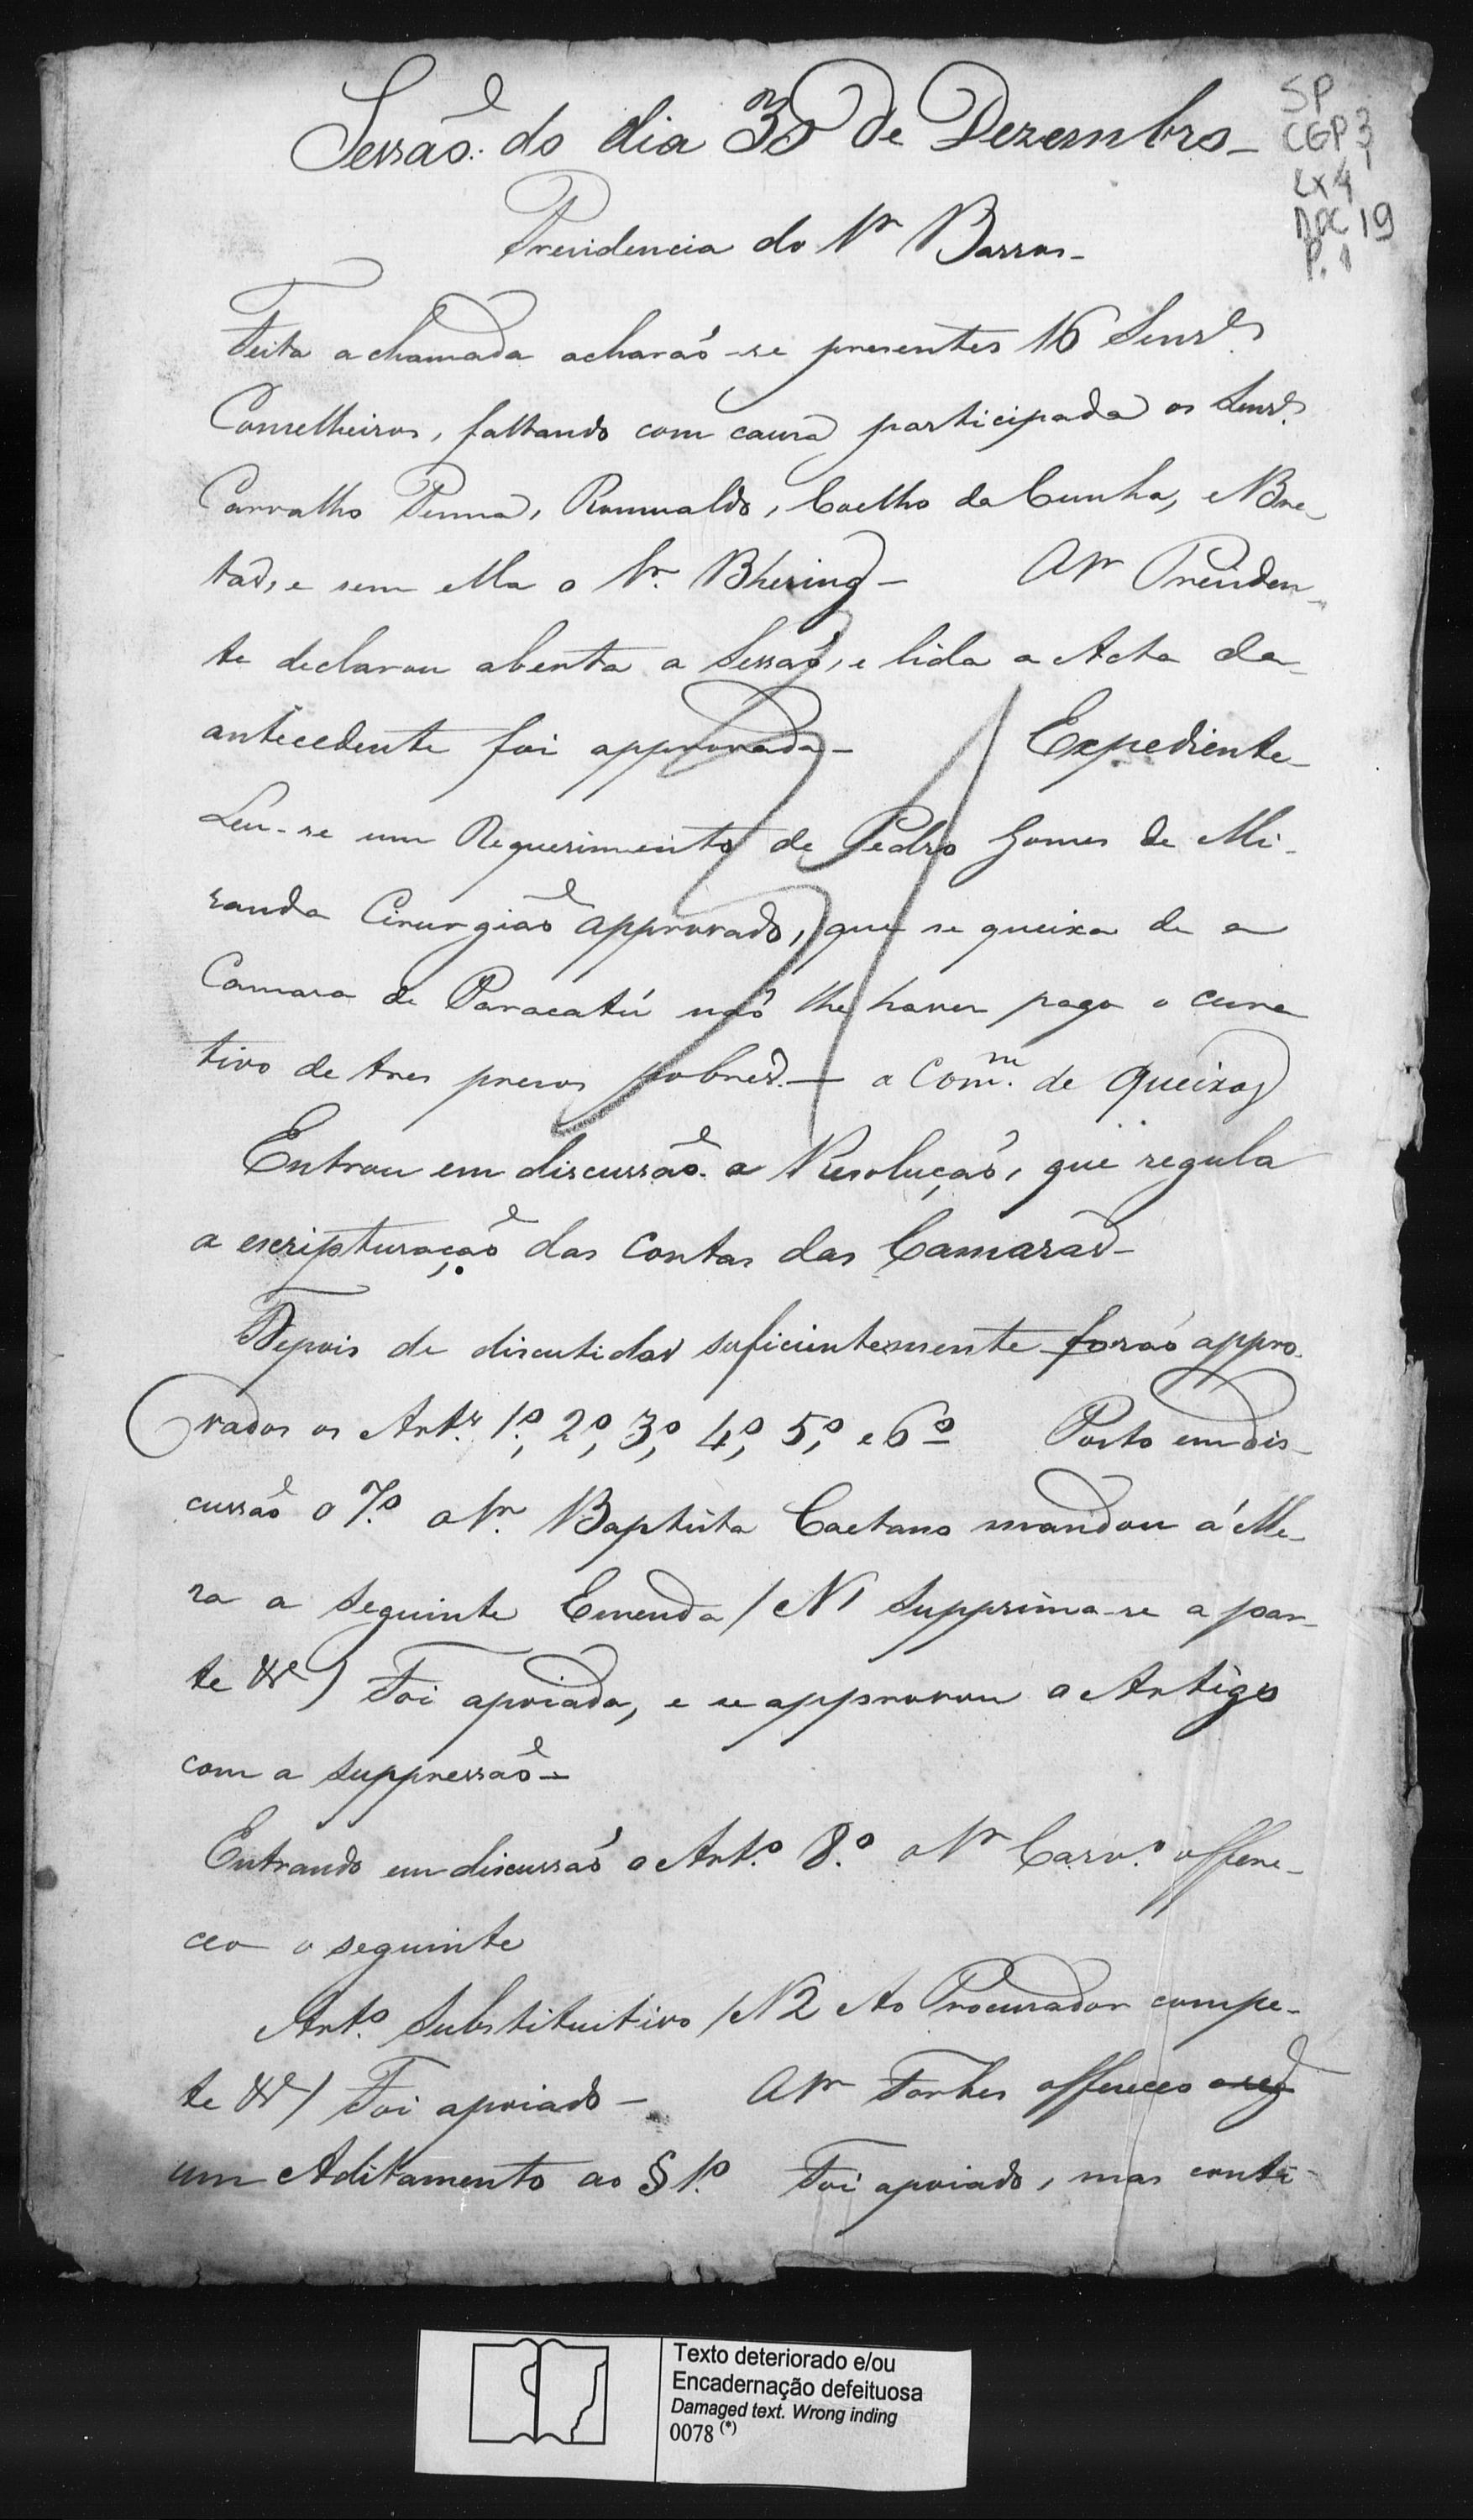 Sessaõ do dia 30 de Dezembro_
SP
CGP 3
Cx 4
DOC 19
P. 1
Presidencia do Sr Barros_
Feita a chamada acharaõ-se presentes 16 Senres
Conselheiros, faltando com causa participada os Senres
Carvalho Penna, Romualdo, Coelho da Cunha, e Bre_
tas, e sem ella o Sr. Bhering_ O Sr Presiden_
te declarou aberta a Sessaõ, e lida a Acta da_
antecedente foi approvada_ Expediente_
Leu-se um Requerimento de Pedro Gomes de Mi_
randa Cirurgiaõ approvado, que se queixa de a
Camara de Paracatú naõ lhe haver pago o cura
tivo de tres presos pobres._ a Comm. de queixas
Entrou em discussaõ a Resoluçaõ, que regula
a escripturaçaõ das Contas das Camaras_
Depois de discutidos suficientemente foraõ appro_
vados os Arts. 1º, 2º, 3º, 4º, 5º, e 6º Posto em dis_
cussaõ o 7º o Sr. Baptista Caetano mandou á Me_
za a seguinte Emenda / N1 Supprima-se a par_
te &ª / Foi apoiada, e se approvou o Artigo
com a suppressaõ_
Entrando em discussaõ o Artº 8º o Sr Carvº offere_
ceo o seguinte
Artº Substituitivo / N2 Ao Procurador compe_
te &ª / Foi apoiado_ O Sr Fortes offereceo o seg
um Aditamento ao § 1º Foi apoiado, mas conti_
Texto deteriorado e/ou
Encadernação defeituosa
Damaged text. Wrong inding
0078 (*)